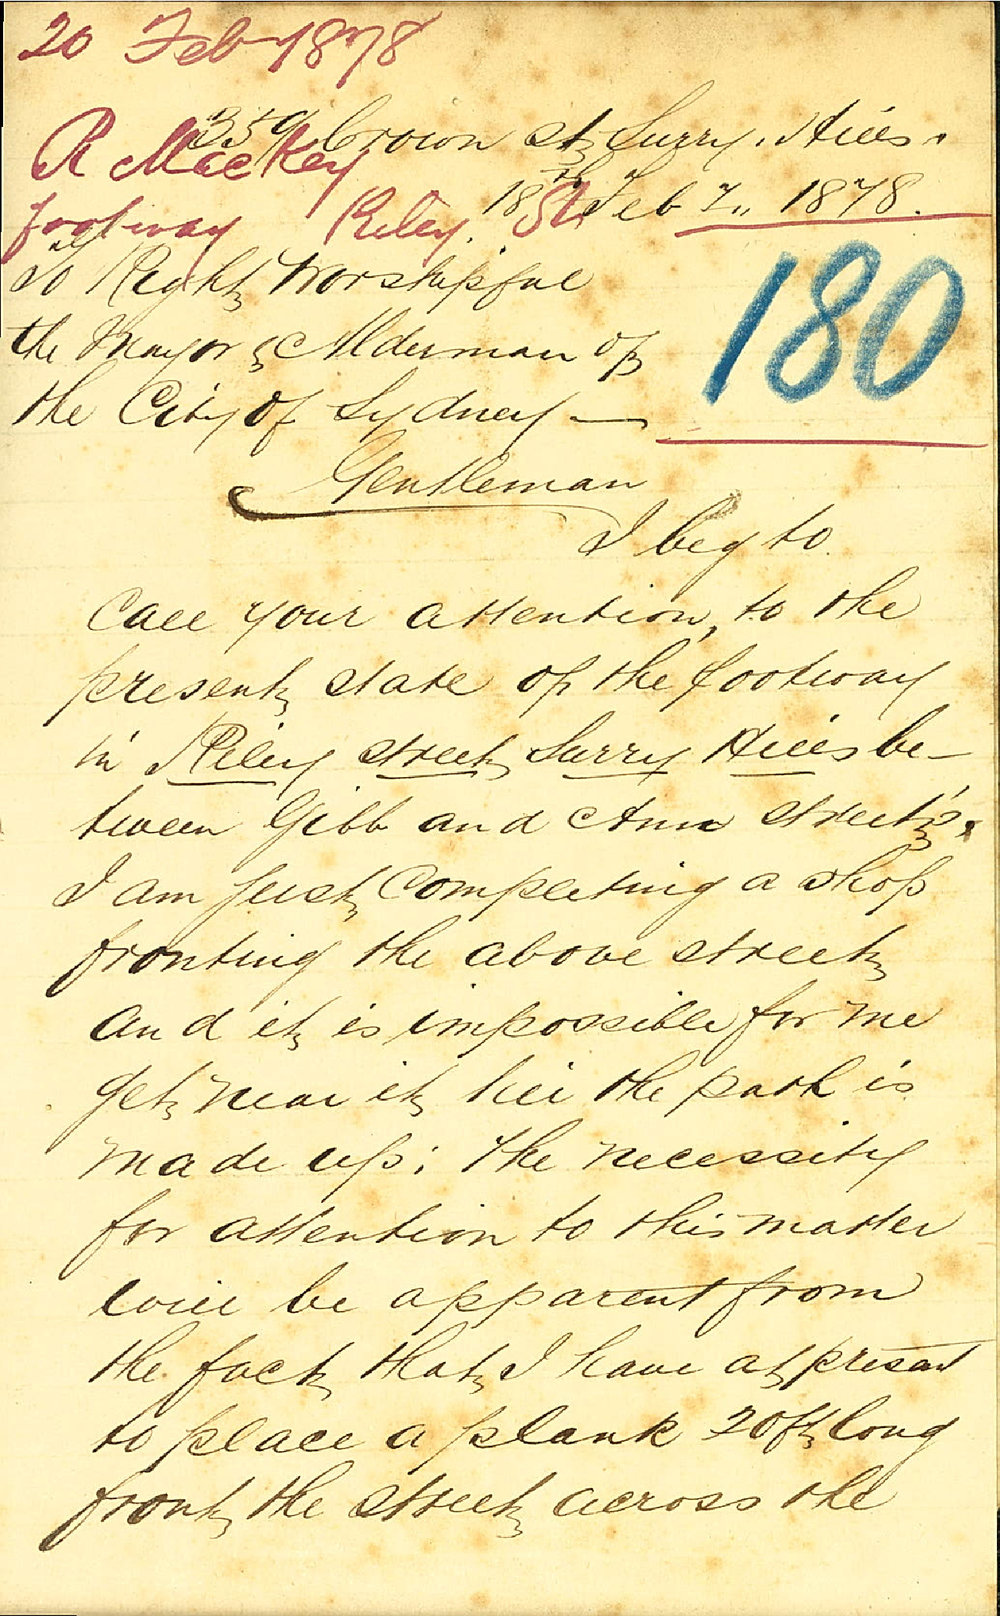 20 Feb 1878
359 Crown st Surry Hills.
R Mackey
18th Feby,, 1878.
footway Riley St
To Right Worshipful
the Mayor & Alderman of
the City of Sydney —
180
Gentleman
I beg to
Call your attention, to the
present state of the footway
in Riley street Surry Hills be-
tween Gibb and Ann street's.
I am just Completing a shop
fronting the above street
and it is impossible for me
get near it till the path is
made up; the necessity
for attention to this matter
will be apparent from
the fact that I have at present
to place a plank 20ft long
front the street across the